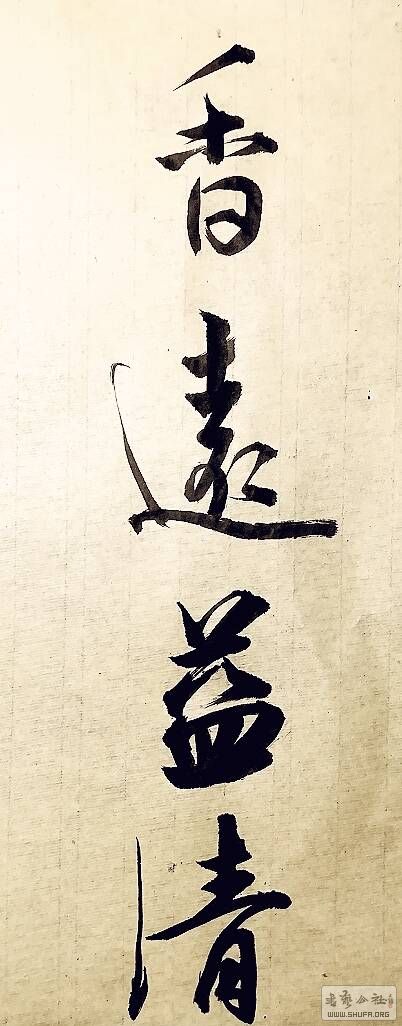 香遠益清
書藝公社
WWW.SHUFA.ORG